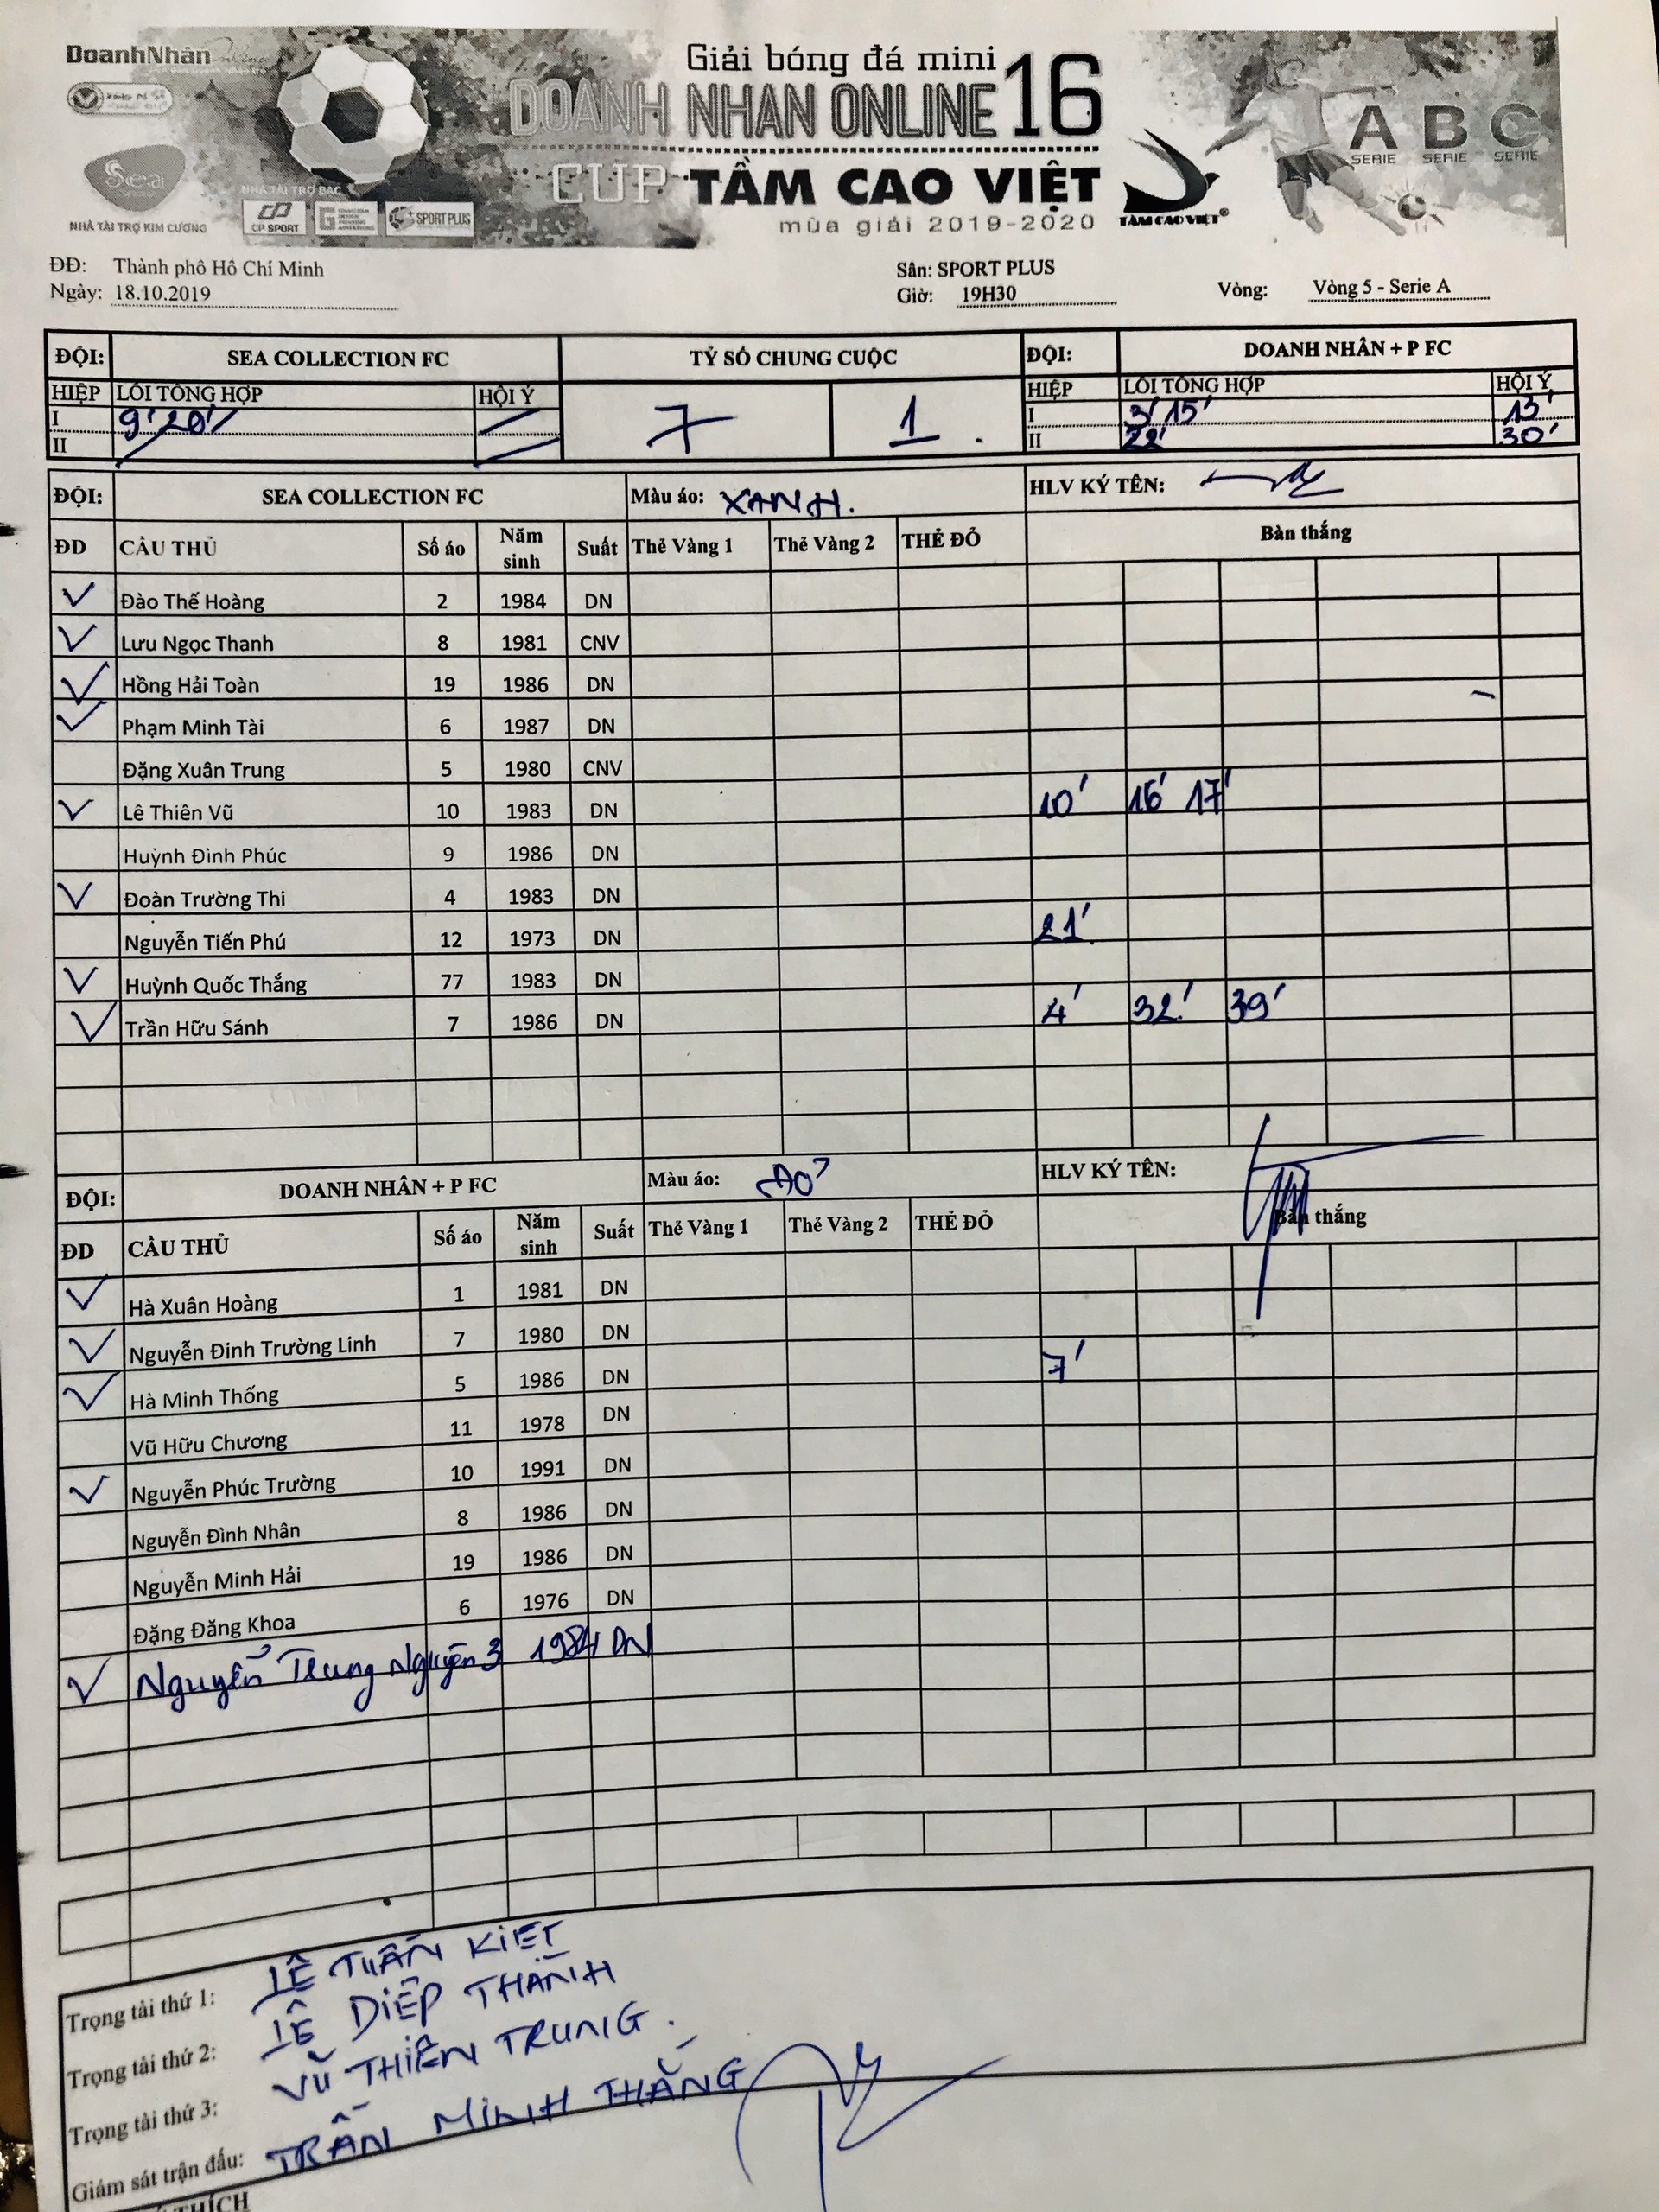 DoanhNhân Online
Giải bóng đá mini
DOANH NHAN ONLINE 16
CUP TẦM CAO VIỆT
mùa giải 2019-2020
TẦM CAO VIỆT®
A B C
SERIE SERIE SERIE
Sea
NHÀ TÀI TRỢ KIM CƯƠNG
NHÀ TÀI TRỢ BẠC
CP SPORT
SPORT PLUS
ĐĐ: Thành phô Hô Chí Minh Sân: SPORT PLUS
Ngày: 18.10.2019 Giờ: 19H30 Vòng: Vòng 5 - Serie A
ĐỘI: SEA COLLECTION FC TỶ SỐ CHUNG CUỘC ĐỘI: DOANH NHÂN + P FC
HIỆP LỖI TỔNG HỢP HỘI Ý 7 1 HIỆP LỖI TỔNG HỢP HỘI Ý
I 9' 20' I 3' 15' 13'
II II 22' 30'
ĐỘI: SEA COLLECTION FC Màu áo: XANH. HLV KÝ TÊN:
ĐD CẦU THỦ Số áo Năm sinh Suất Thẻ Vàng 1 Thẻ Vàng 2 THẺ ĐỎ Bàn thắng
Đào Thế Hoàng 2 1984 DN
Lưu Ngọc Thanh 8 1981 CNV
Hồng Hải Toàn 19 1986 DN
Phạm Minh Tài 6 1987 DN
Đặng Xuân Trung 5 1980 CNV
Lê Thiên Vũ 10 1983 DN 10' 16' 17'
Huỳnh Đình Phúc 9 1986 DN
Đoàn Trường Thi 4 1983 DN
Nguyễn Tiến Phú 12 1973 DN 21'
Huỳnh Quốc Thắng 77 1983 DN
Trần Hữu Sánh 7 1986 DN 4' 32' 39'
ĐỘI: DOANH NHÂN + P FC Màu áo: ĐỎ HLV KÝ TÊN:
ĐD CẦU THỦ Số áo Năm sinh Suất Thẻ Vàng 1 Thẻ Vàng 2 THẺ ĐỎ Bàn thắng
Hà Xuân Hoàng 1 1981 DN
Nguyễn Đinh Trường Linh 7 1980 DN
Hà Minh Thống 5 1986 DN 7'
Vũ Hữu Chương 11 1978 DN
Nguyễn Phúc Trường 10 1991 DN
Nguyễn Đình Nhân 8 1986 DN
Nguyễn Minh Hải 19 1986 DN
Đặng Đăng Khoa 6 1976 DN
Nguyễn Trung Nguyên 3 1984 DN
Trọng tài thứ 1: LÊ TUẤN KIỆT
Trọng tài thứ 2: LÊ DIỆP THÀNH
Trọng tài thứ 3: VŨ THIÊN TRUNG.
Giám sát trận đấu: TRẦN MINH THẮNG
THÍCH